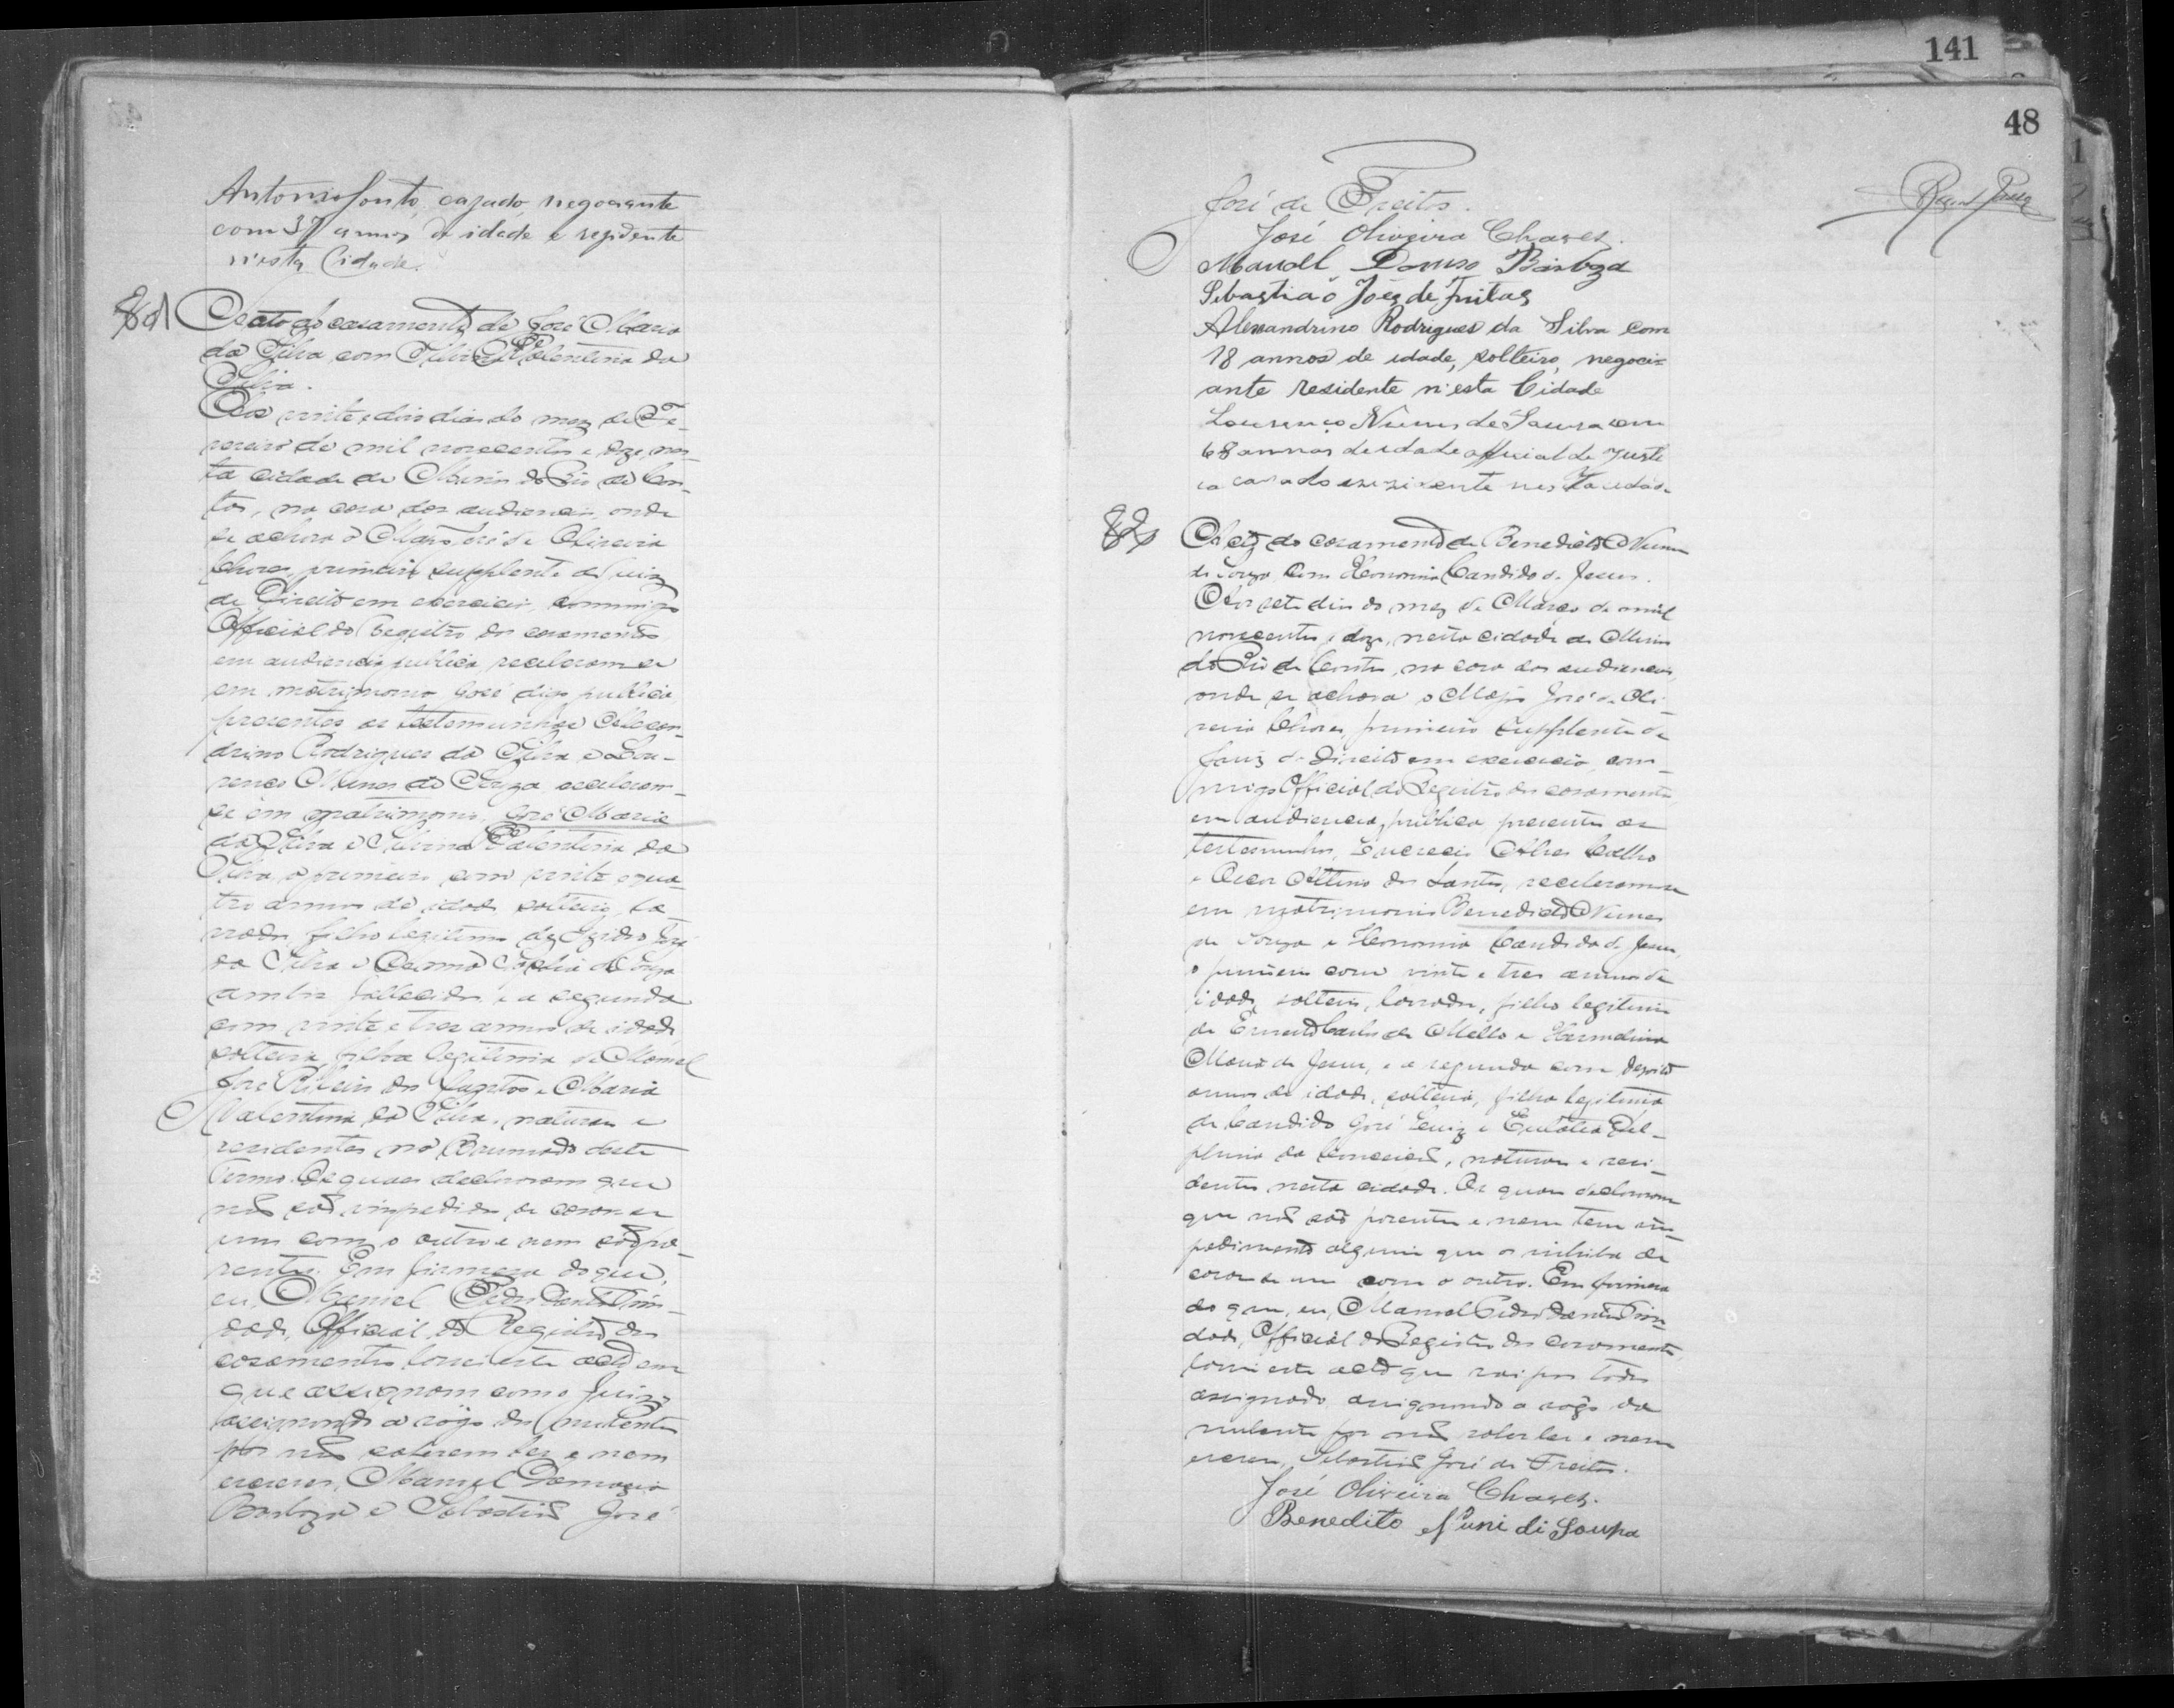 Antonio Souto, cazado, negociante
com 37 annos de idade e rezidente
n'esta Cidade.
Acto do casamento de José Maria
da Silva com Silvina Valentina da
Silva.
Aos vinte e dois dias do mez de Fe-
vereiro de mil novecentos e doze, nes-
ta cidade de Minas do Rio de Con-
tas, na casa das audiencias, onde
se achava o Major José de Oliveira
Chaves, primeiro supplente do juiz
de Direito em exercicio, commigo
Official do Registro dos casamentos
em audiencia publica receberam-se
em matrimonio José digo publica,
presentes as testemunhas Alexan-
drino Rodrigues da Silva e Lou-
renço Nunes de Souza receberam-
se em matrimonio José Maria
da Silva e Silvina Valentina da
Silva, o primeiro com vinte e qua-
tro annos de idade, solteiro, la-
vrador, filho legitimo de José
da Silva e de Souza
ambos fallecidos, e a segunda
com vinte e tres annos de idade,
solteira, filha legitima de Manoel
José Ribeiro dos Santos e Maria
Valentina da Silva, naturaes e
residentes no Brumado deste
Termo. Os quaes declararam que
não são impedidos de casar-se
um com o outro e nem são pa-
rentes. Em firmeza do que,
eu, Manoel Pedro Dantas Trin-
dade, Official do Registro dos
casamentos lavrei este acto em
que assignam com o Juiz,
assignando a rogo dos nubentes
por não saberem ler e nem
escrever, Manoel Damazio
Barboza e Sebastião José
141
48
José de Freitas.
José Oliveira Chaves.
Manoel Barboza
Sebastiaõ Jóes de Freitas
Alexandrino Rodrigues da Silva com
18 annos de idade, solteiro, negoci-
ante residente n'esta Cidade
Lourenço Nunes de Souza com
68 annos de idade official de Justi
ca casado e rezidente nesta cidade
Acto do casamento de Benedicto Nunes
de Souza com Honorina Candida de Jesus.
Aos sete dias do mez de Março de mil
novecentos e doze, nesta cidade de Minas
do Rio de Contas, na casa das audiencias,
onde se achava o Major José de Oli-
veira Chaves, primeiro supplente do
Juiz de Direito em exercicio, com-
migo Official do Registro dos casamentos
em audiencia publica presentes as
testemunhas, Lucrecio Alves Coelho
e Oscar Altino dos Santos, receberam-se
em matrimonio Benedicto Nunes
de Souza e Honorina Candida de Jesus,
o primeiro com vinte e tres annos de
idade, solteiro, lavrador, filho legitimo
de Ernesto Carlos de Mello e Hermelina
Maria de Jesus, e a segunda com dezoito
annos de idade, solteira, filha legitima
de Candido José Luiz e Eulalia Del-
phina da Conceição, naturaes e resi-
dentes nesta cidade. Os quaes declararam
que não são parentes e nem tem im-
pedimento algum que os inhiba de
casar-se um com o outro. Em firmeza
do que, eu, Manoel Pedro Dantas Trin-
dade, Official do Registro dos casamentos
lavrei este acto que vai por todos
assignado, assignando a rogo da
nubente por não saber ler e nem
escrever, Sebastião José de Freitas.
José Oliveira Chaves.
Benedito Nuni di Souza